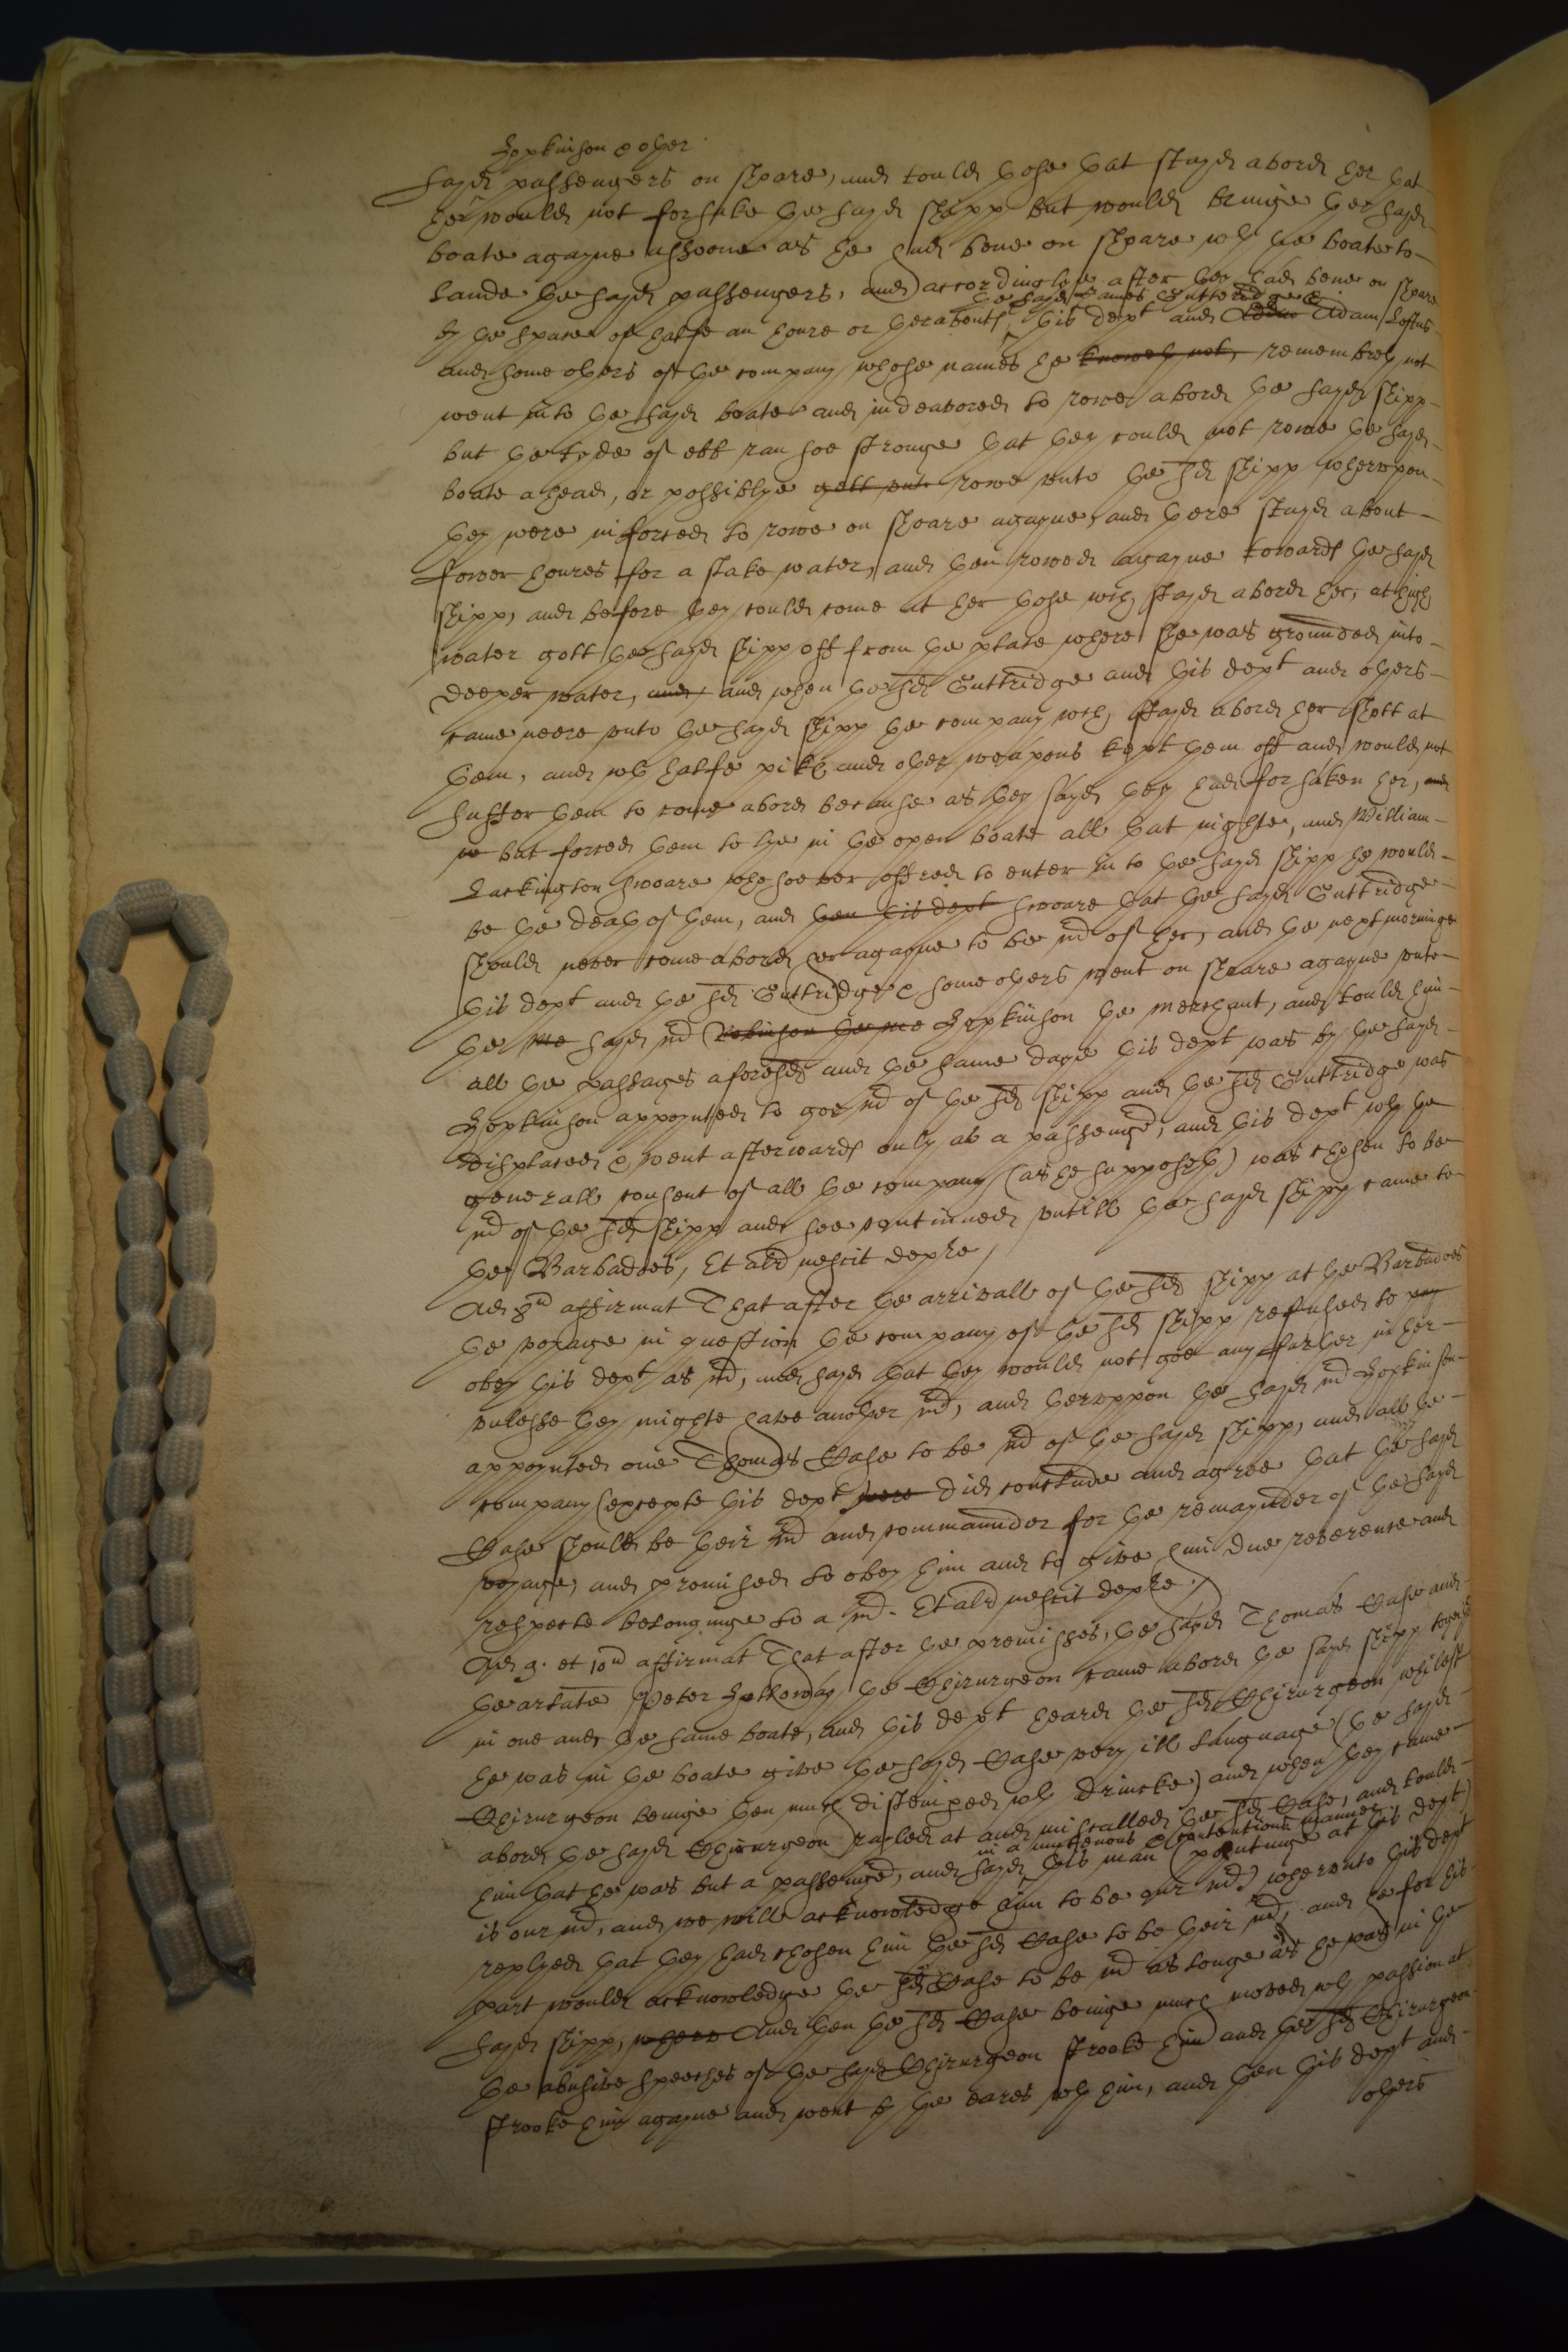 Hopkinson & other
sayd passengers on shoare, and tould those that stayd abord her that
hee would not forsake the sayd shipp but would bringe the sayd
boate agayne assoone as he had bene on shoare wth the boate to
lande the sayd passengers, and accordinglye after they had bene on shoare
the sayd James Guttridge &
by the space of halfe an houre or therabouts, this dept and Adam Loftus
and some others of the company whose names he knoweth not, remembreth not
went into the sayd boate and indeavored to rowe abord the sayd shipp
but the tyde of ebb ran soe stronge that they could not rowe the sayd
boate ahead, or possiblye gett unto rowe unto the sd shipp wherupon
they were inforced to rowe on shoare agayne, and there stayd about
fower houres for a slake water, and then rowed agayne towards the sayd
shipp, and before they could come at her those wch stayd abord her, at high
water gott the sayd shipp off from the place where she was grounded into
deeper water, and, and when the sd Guttridge and this dept and others
came neere unto the sayd shipp the company wch stayd abord her shott at
them, and wth halfe pikes and other weapons kept them off and would not
suffer them to come abord because as they sayd they had forsaken her, and
but forced them to lye in the open boate all that nighte, and William
Lackington swoare whosoever offred to enter in to the sayd shipp he would
be the death of them, and then this dept swoare that the sayd Guttridge
should never come abord her agayne to be mr of her, and the next morninge
this dept and the sd Guttridge & some others went on shoare agayne unto
the me sayd mr Robinson the me Hopkinson the merchant, and tould him
all the passages aforesd and the same daye this dept was by the sayd
Hopkinson appoynted to goe mr of the sd shipp and the sd Guttridge was
displaced & went afterwards only as a passenger, and this dept wth the
generall consent of all the company (as he supposeth) was chosen to be
mr of the sd shipp and soe continued untill the sayd shipp came to
the Barbadoes, Et alr nescit depre
Ad 8um affirmat That after the arrivall of the sd shipp at the Barbadoes
the voyage in question the company of the sd shipp refused to pay
obey this dept as mr, and sayd that they would not goe any farther in her
unlesse they mighte have another mr, and theruppon the sayd mr Hopkinson
appoynted one Thomas Case to be mr of the sayd shipp, and all the
company (excepte this dept were did conclude and agree that the sayd
Case should be their mr and commaunder for the remaynder of the sayd
voyage, and promised to obey him and to give him due reverence and
respecte belonginge to a mr. Et alr nescit depre.
Ad 9. et 10um affirmat That after the premisses, the sayd Thomas Case and
the arlate Peter Holloway the Chirurgeon came abord the sayd shipp together
in one and the same boate, and this dept heard the sd Chirurgeon whilest
he was in the boate give the sayd Case very ill language (the sayd
Chirurgeon beinge then much distempered wth drincke) and when they came
abord the sayd Chirurgeon rayled at and miscalled the sd Case, and tould
in a mutenous & contentious manner
him that he was but a passenger, and sayd this man (poyntinge at this dept)
is our mr, and we will acknowledge him to be our mr) wherunto this dept
replyed that they had chosen him the sd Case to be their mr, and he for his
part would acknowledge the sd Case to be mr as longe as he was in the
sayd shipp, where And then the sd Case beinge much moved wth passion at
the abusive speeches of the sayd Chirurgeon strooke him and the sd Chirurgeon
strooke him agayne and went by the eares wth him, and then this dept and
others